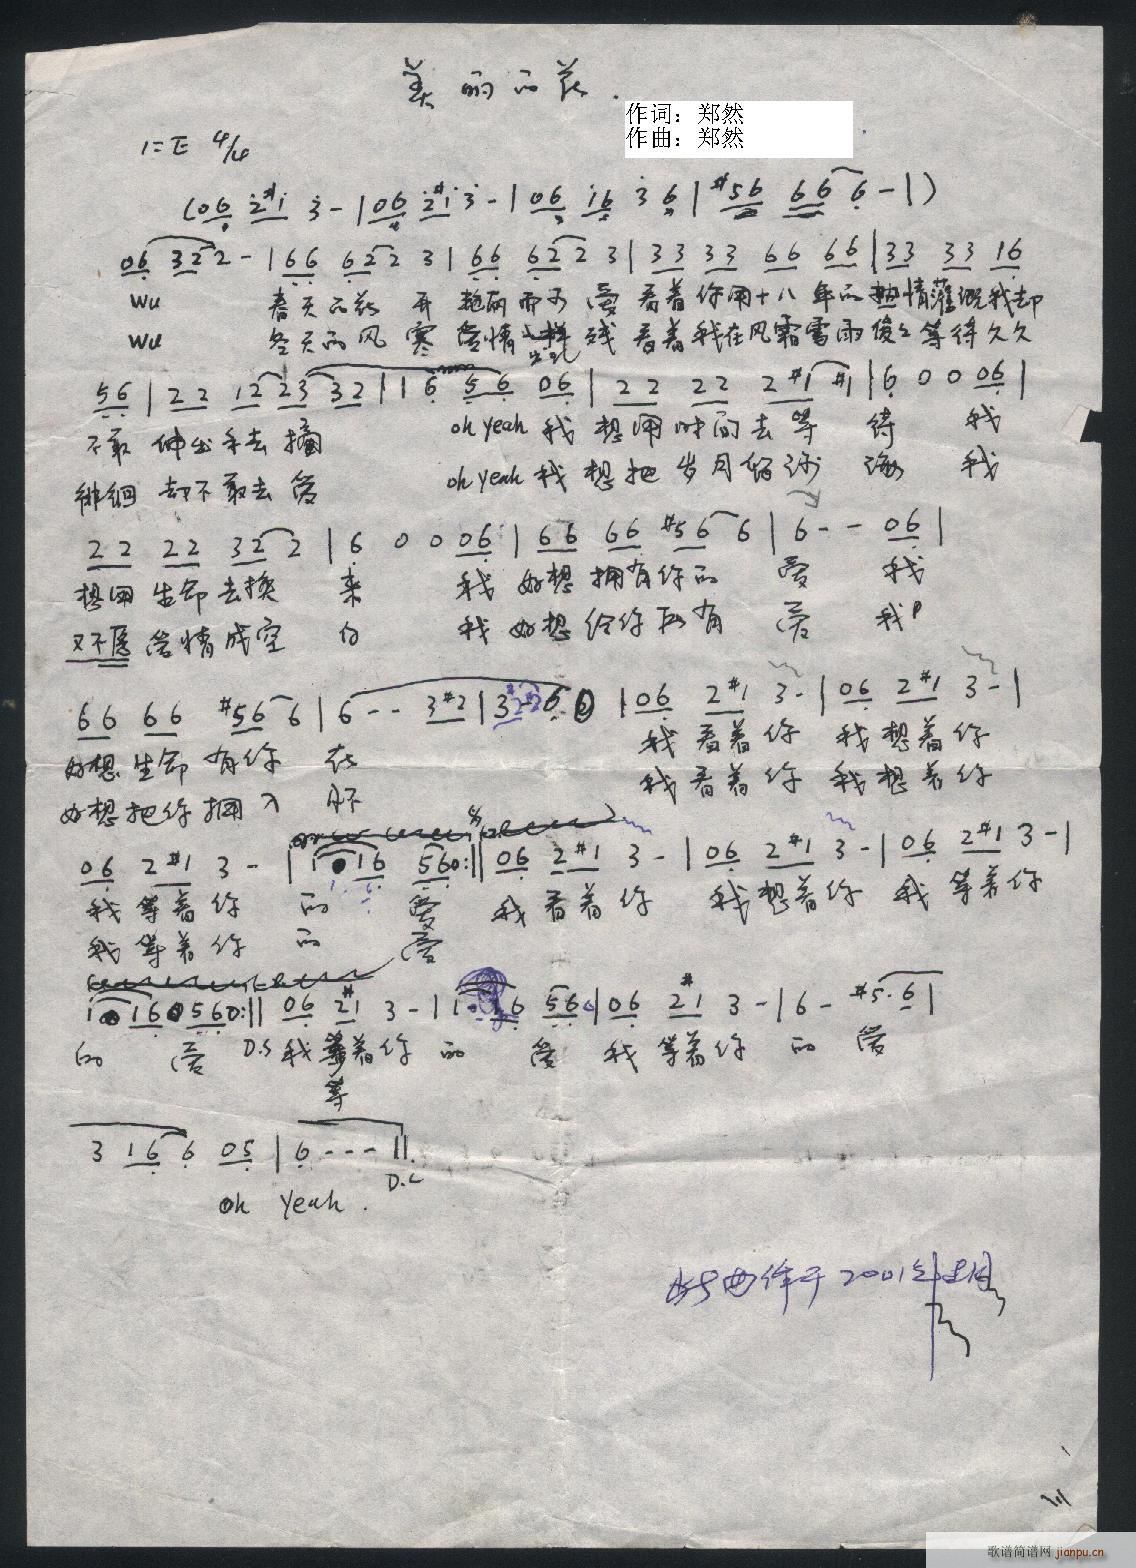 美丽的花.
作词：郑然
作曲：郑然
1=E 4/4
(06 2#1 3 - | 06 2#1 3 - | 06 16 3 6 | #56 66 6 - | )
06 322 - | 66 622 3 | 66 622 3 | 33 33 66 66 | 33 33 16
Wu 春天的花 开 艳丽而可 爱 看着你用十八年的热情灌溉我却
Wu 冬天的风 寒 爱情 残 看着我在风霜雷雨傻傻等待久久
56 | 22 12 23 32 | 1 6 56 06 | 22 22 2#1 #1 | 6 0 0 06 |
不敢 伸出手去摘 oh yeah 我 想用时间去等 待 我
徘徊 却不敢去爱 oh yeah 我 想把岁月留 我
22 22 32 2 | 6 0 0 06 | 66 66 #56 6 | 6 - - 06 |
想用 生命去换 来 我 好想 拥有你的 爱 我
又不愿 爱情成空 白 我 好想 给你所有 爱 我
66 66 #56 6 | 6 - - 3#2 | 3 6 0 | 06 2#1 3 - | 06 2#1 3 - |
好想 生命 有你 在 我 看着你 我 想着你
好想把你拥入 怀 我 看着你 我 想着你
06 2#1 3 - | 1 16 560 :|| 06 2#1 3 - | 06 2#1 3 - | 06 2#1 3 - |
我 等着你 的 爱 我 看着你 我 想着你 我 等着你
我 等着你 的 爱
1 16 560 :|| 06 2#1 3 - | 1 6 56 | 06 2#1 3 - | 6 - #5. 6 |
的 爱 D.S 我 等着你 的 爱 我 等着你 的 爱
等
3 16 6 05 | 6 - - - ||
D.C
oh Yeah .
此曲作于2001年
歌谱简谱网 jianpu.cn